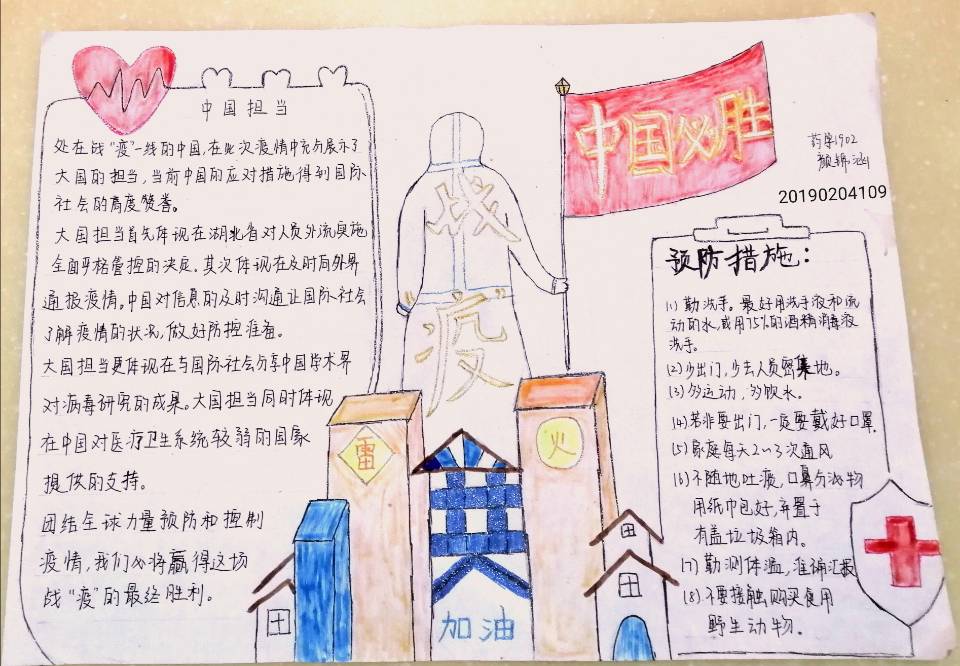 中国担当
处在战“疫”一线的中国,在此次疫情中充分展示了
大国的担当,当前中国的应对措施得到国际
社会的高度赞誉。
大国担当首先体现在湖北省对人员外流实施
全面严格管控的决定。其次体现在及时向外界
通报疫情。中国对信息的及时沟通让国际社会
了解疫情的状况,做好防控准备。
大国担当更体现在与国际社会分享中国学术界
对病毒研究的成果。大国担当同时体现
在中国对医疗卫生系统较弱的国家
提供的支持。
团结全球力量预防和控制
疫情,我们必将赢得这场
战“疫”的最终胜利。
战
“疫”
中国必胜
雷
火
加油
药学1902
颜锦涵
20190204109
预防措施:
(1)勤洗手。最好用洗手液和流
动的水,或用75%的酒精消毒液
洗手。
(2)少出门,少去人员密集地。
(3)多运动,多饮水。
(4)若非要出门,一定要戴好口罩
(5)家庭每天2~3次通风
(6)不随地吐痰,口鼻分泌物
用纸巾包好,弃置于
有盖垃圾箱内。
(7)勤测体温,准确汇报
(8)不要接触购买食用
野生动物。